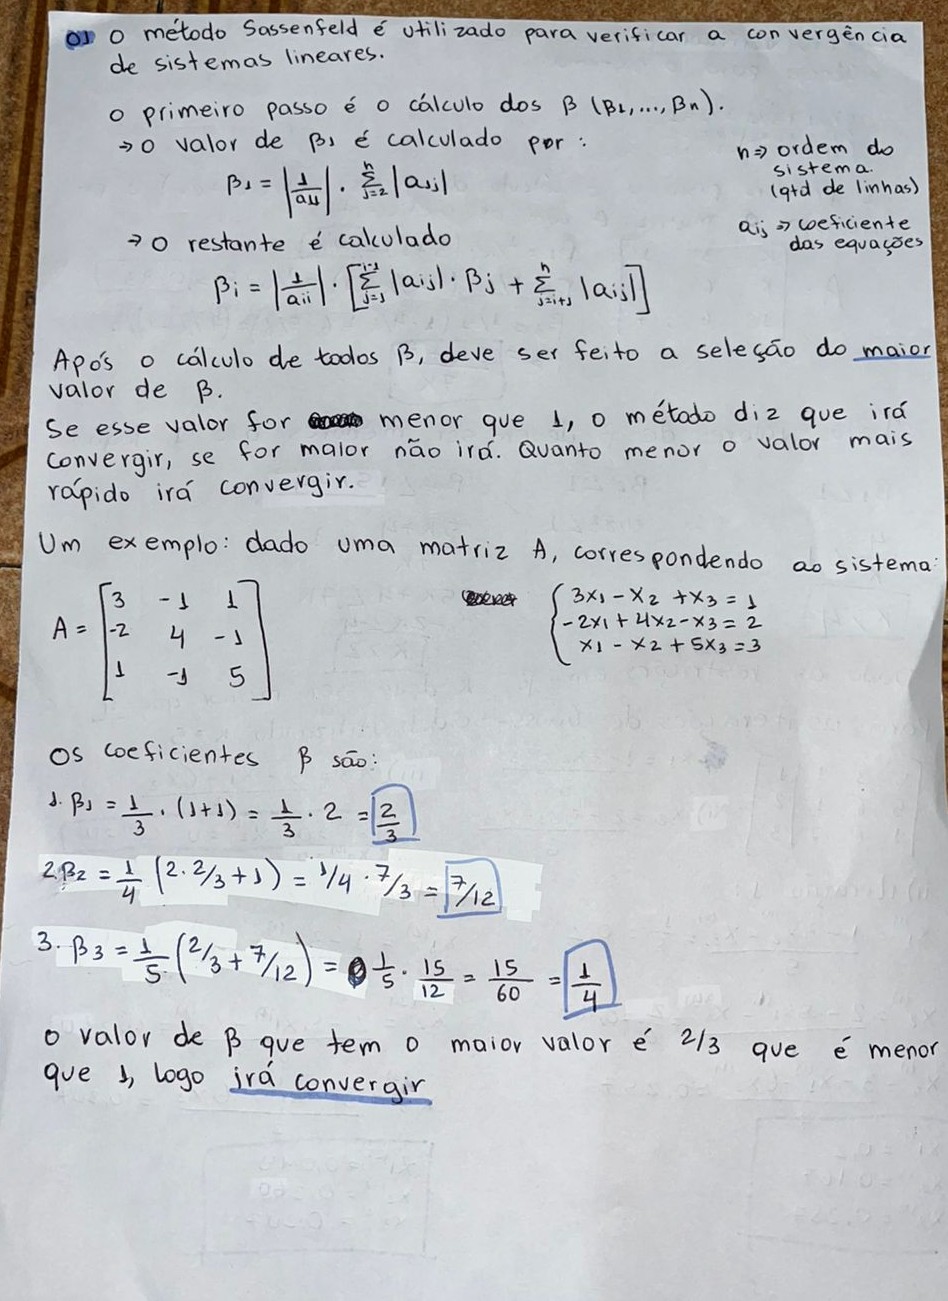 01 O método Sassenfeld é utilizado para verificar a convergência
de sistemas lineares.
O primeiro passo é o cálculo dos β (β1,..., βn).
→ O valor de β1 é calculado por:
β1 = |1/a11| · Σ(j=2 → n) |a1j|
n ⇒ ordem do
sistema.
(qtd de linhas)
→ O restante é calculado
aij ⇒ coeficiente
das equações
βi = |1/aii| · [Σ(j=1 → i-1) |aij| · βj + Σ(j=i+1 → n) |aij|]
Após o cálculo de todos β, deve ser feito a seleção do maior
valor de β.
Se esse valor for menor que 1, o método diz que irá
convergir, se for maior não irá. Quanto menor o valor mais
rápido irá convergir.
Um exemplo: dado uma matriz A, correspondendo ao sistema:
A = [3 -1 1
-2 4 -1
1 -1 5]
{ 3x1 - x2 + x3 = 1
-2x1 + 4x2 - x3 = 2
x1 - x2 + 5x3 = 3
Os coeficientes β são:
1. β1 = 1/3 · (1+1) = 1/3 · 2 = 2/3
2. β2 = 1/4 (2·2/3+1) = 1/4 · 7/3 = 7/12
3. β3 = 1/5 (2/3 + 7/12) = 1/5 · 15/12 = 15/60 = 1/4
O valor de β que tem o maior valor é 2/3 que é menor
que 1, logo irá convergir